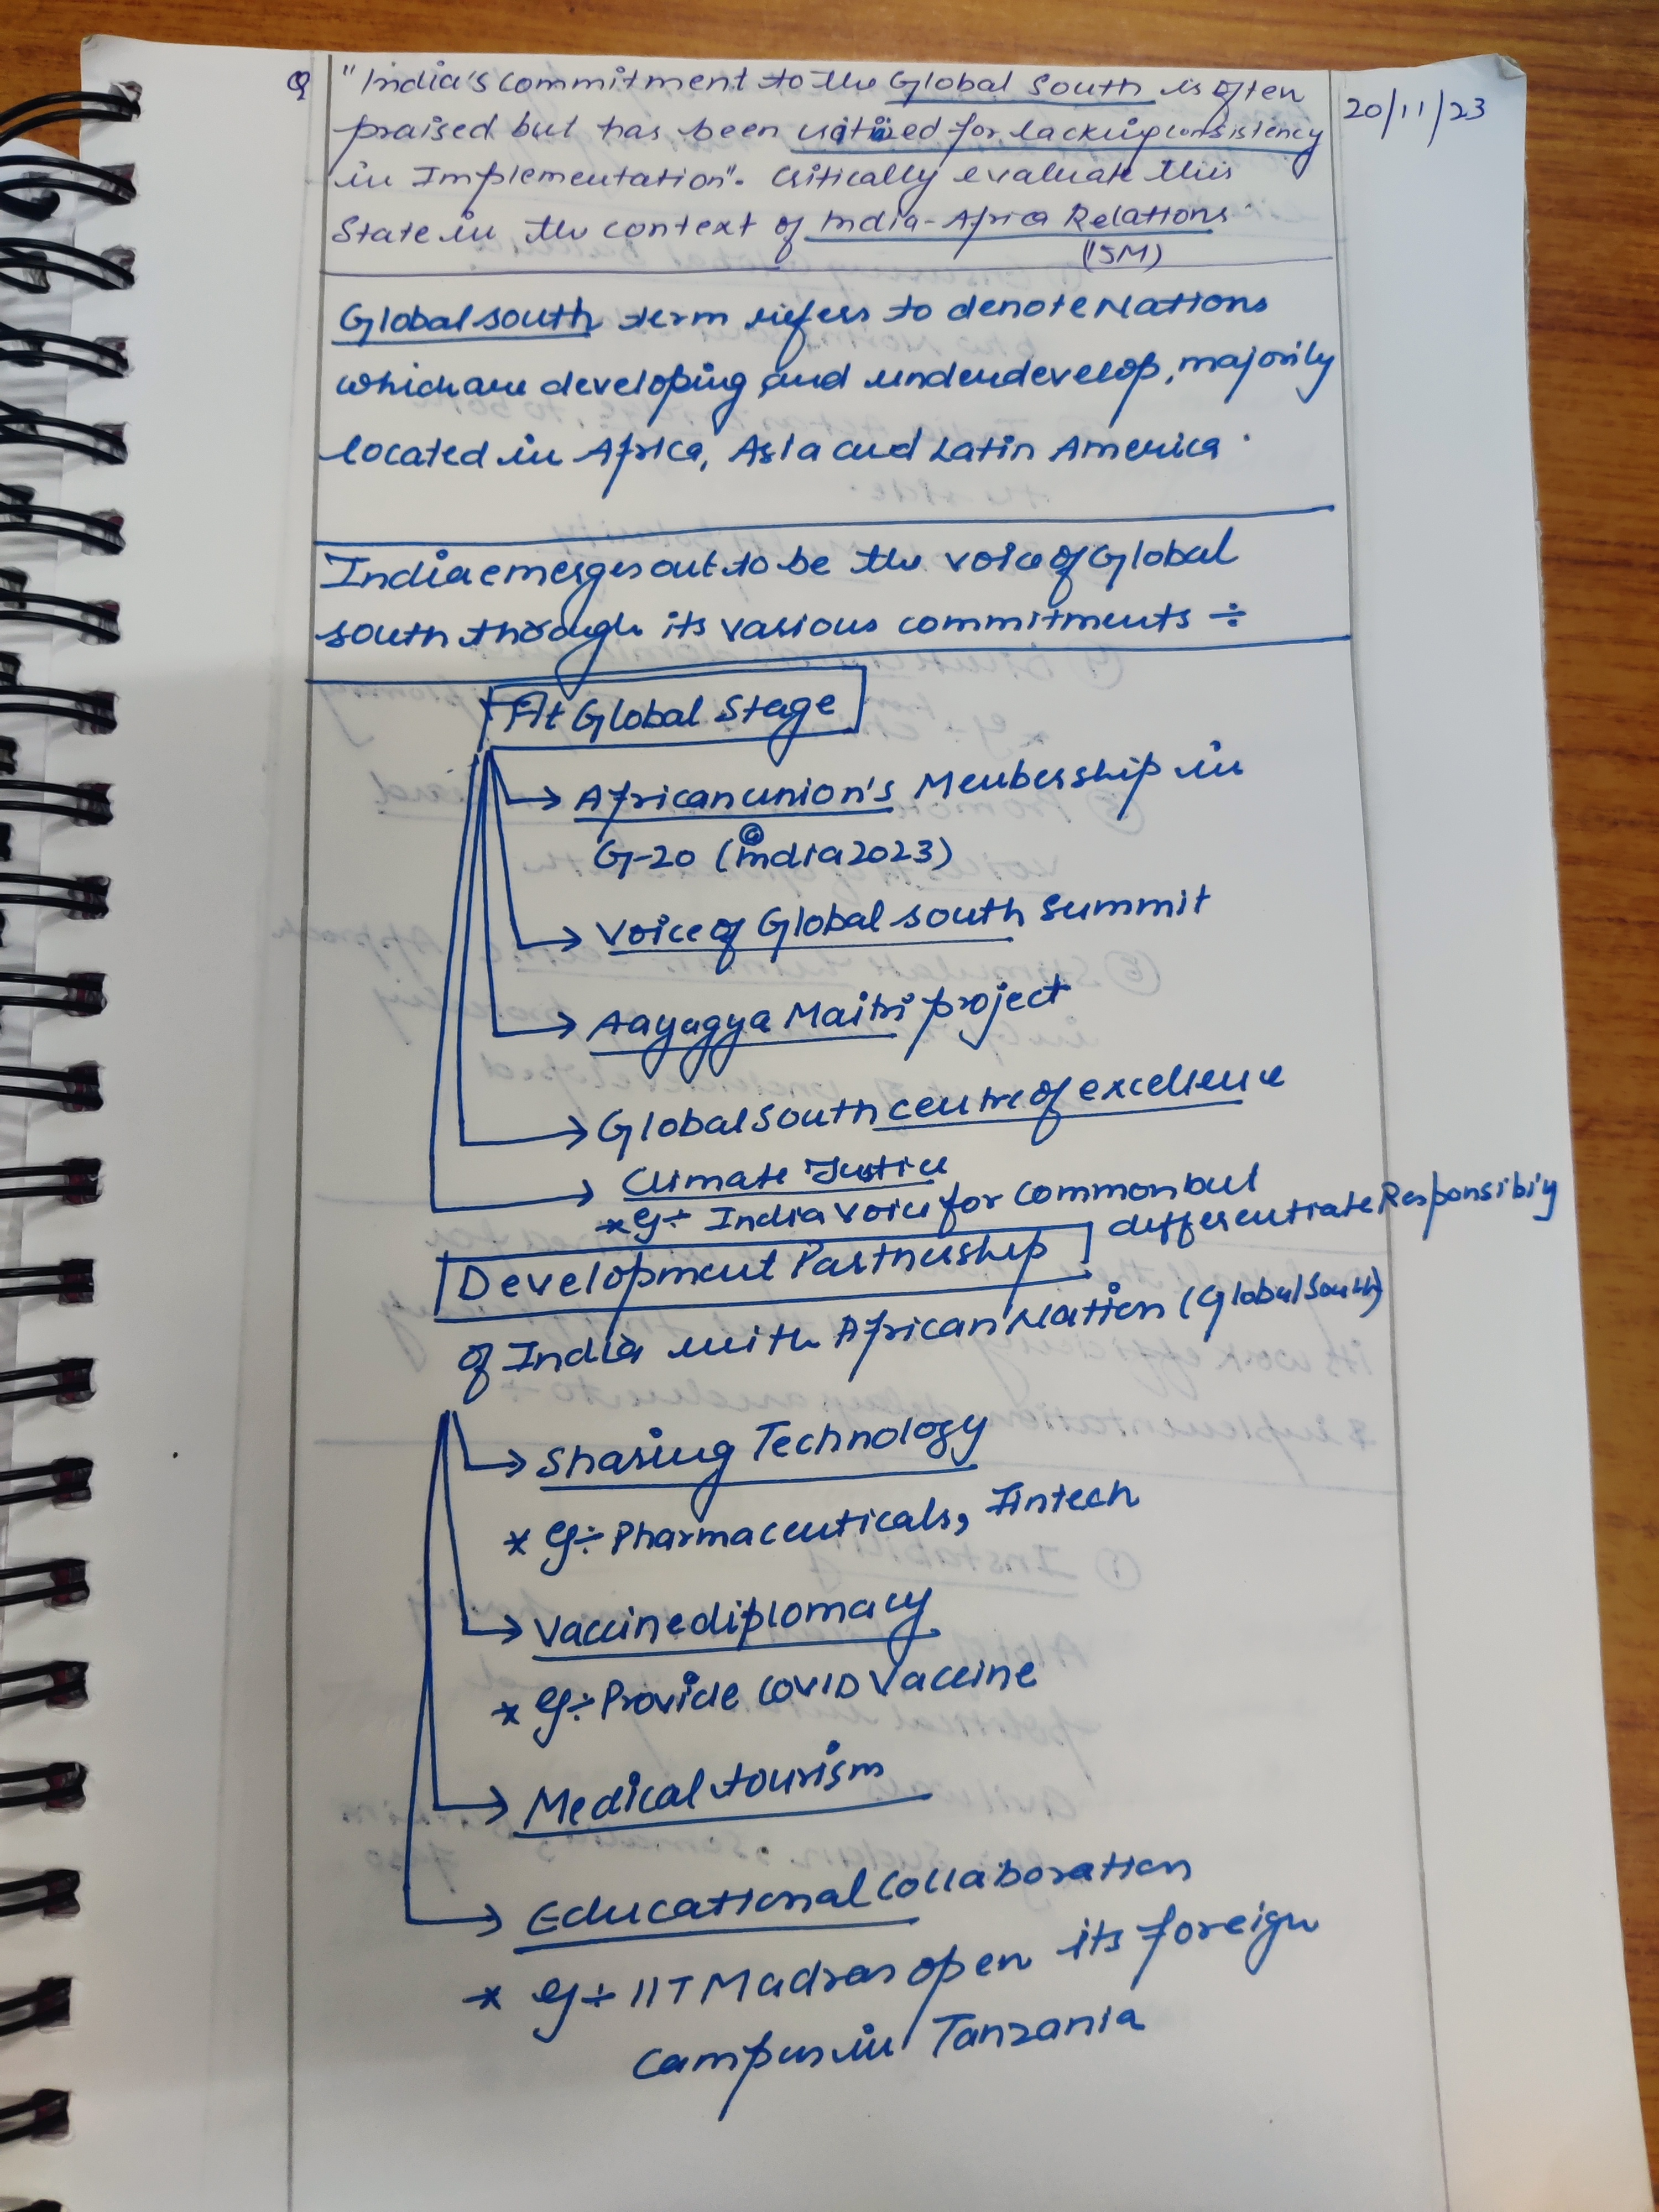 Q "India's commitment to the Global South is often 20/11/23
praised but has been critized for lacking consistency
in Implementation". Critically evaluate this
State in the context of India-Africa Relations.
(15M)
Global south term refers to denote Nations
which are developing and underdevelop, majorily
located in Africa, Asia and Latin America.
India emerges out to be the voice of Global
south through its various commitments ÷
At Global Stage
→ African union's Membership in
G-20 (India 2023)
→ Voice of Global south Summit
→ Aayogya Maitri project
→ Global South centre of excellence
→ Climate Justice
* eg ÷ India voice for common but
differentiate Responsibiy
Development Partnership
of India with African Nation (Global South)
→ Sharing Technology
* eg ÷ Pharmaceuticals, Fintech
→ Vaccine diplomacy
* eg ÷ Provide COVID Vaccine
→ Medical tourism
→ Educational Collaboration
* eg ÷ IIT Madras open its foreign
campus in Tanzania